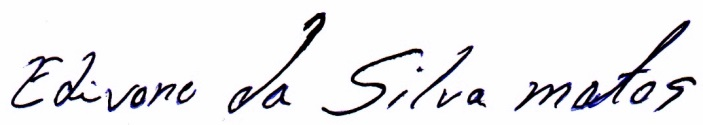 Edivone da Silva matos